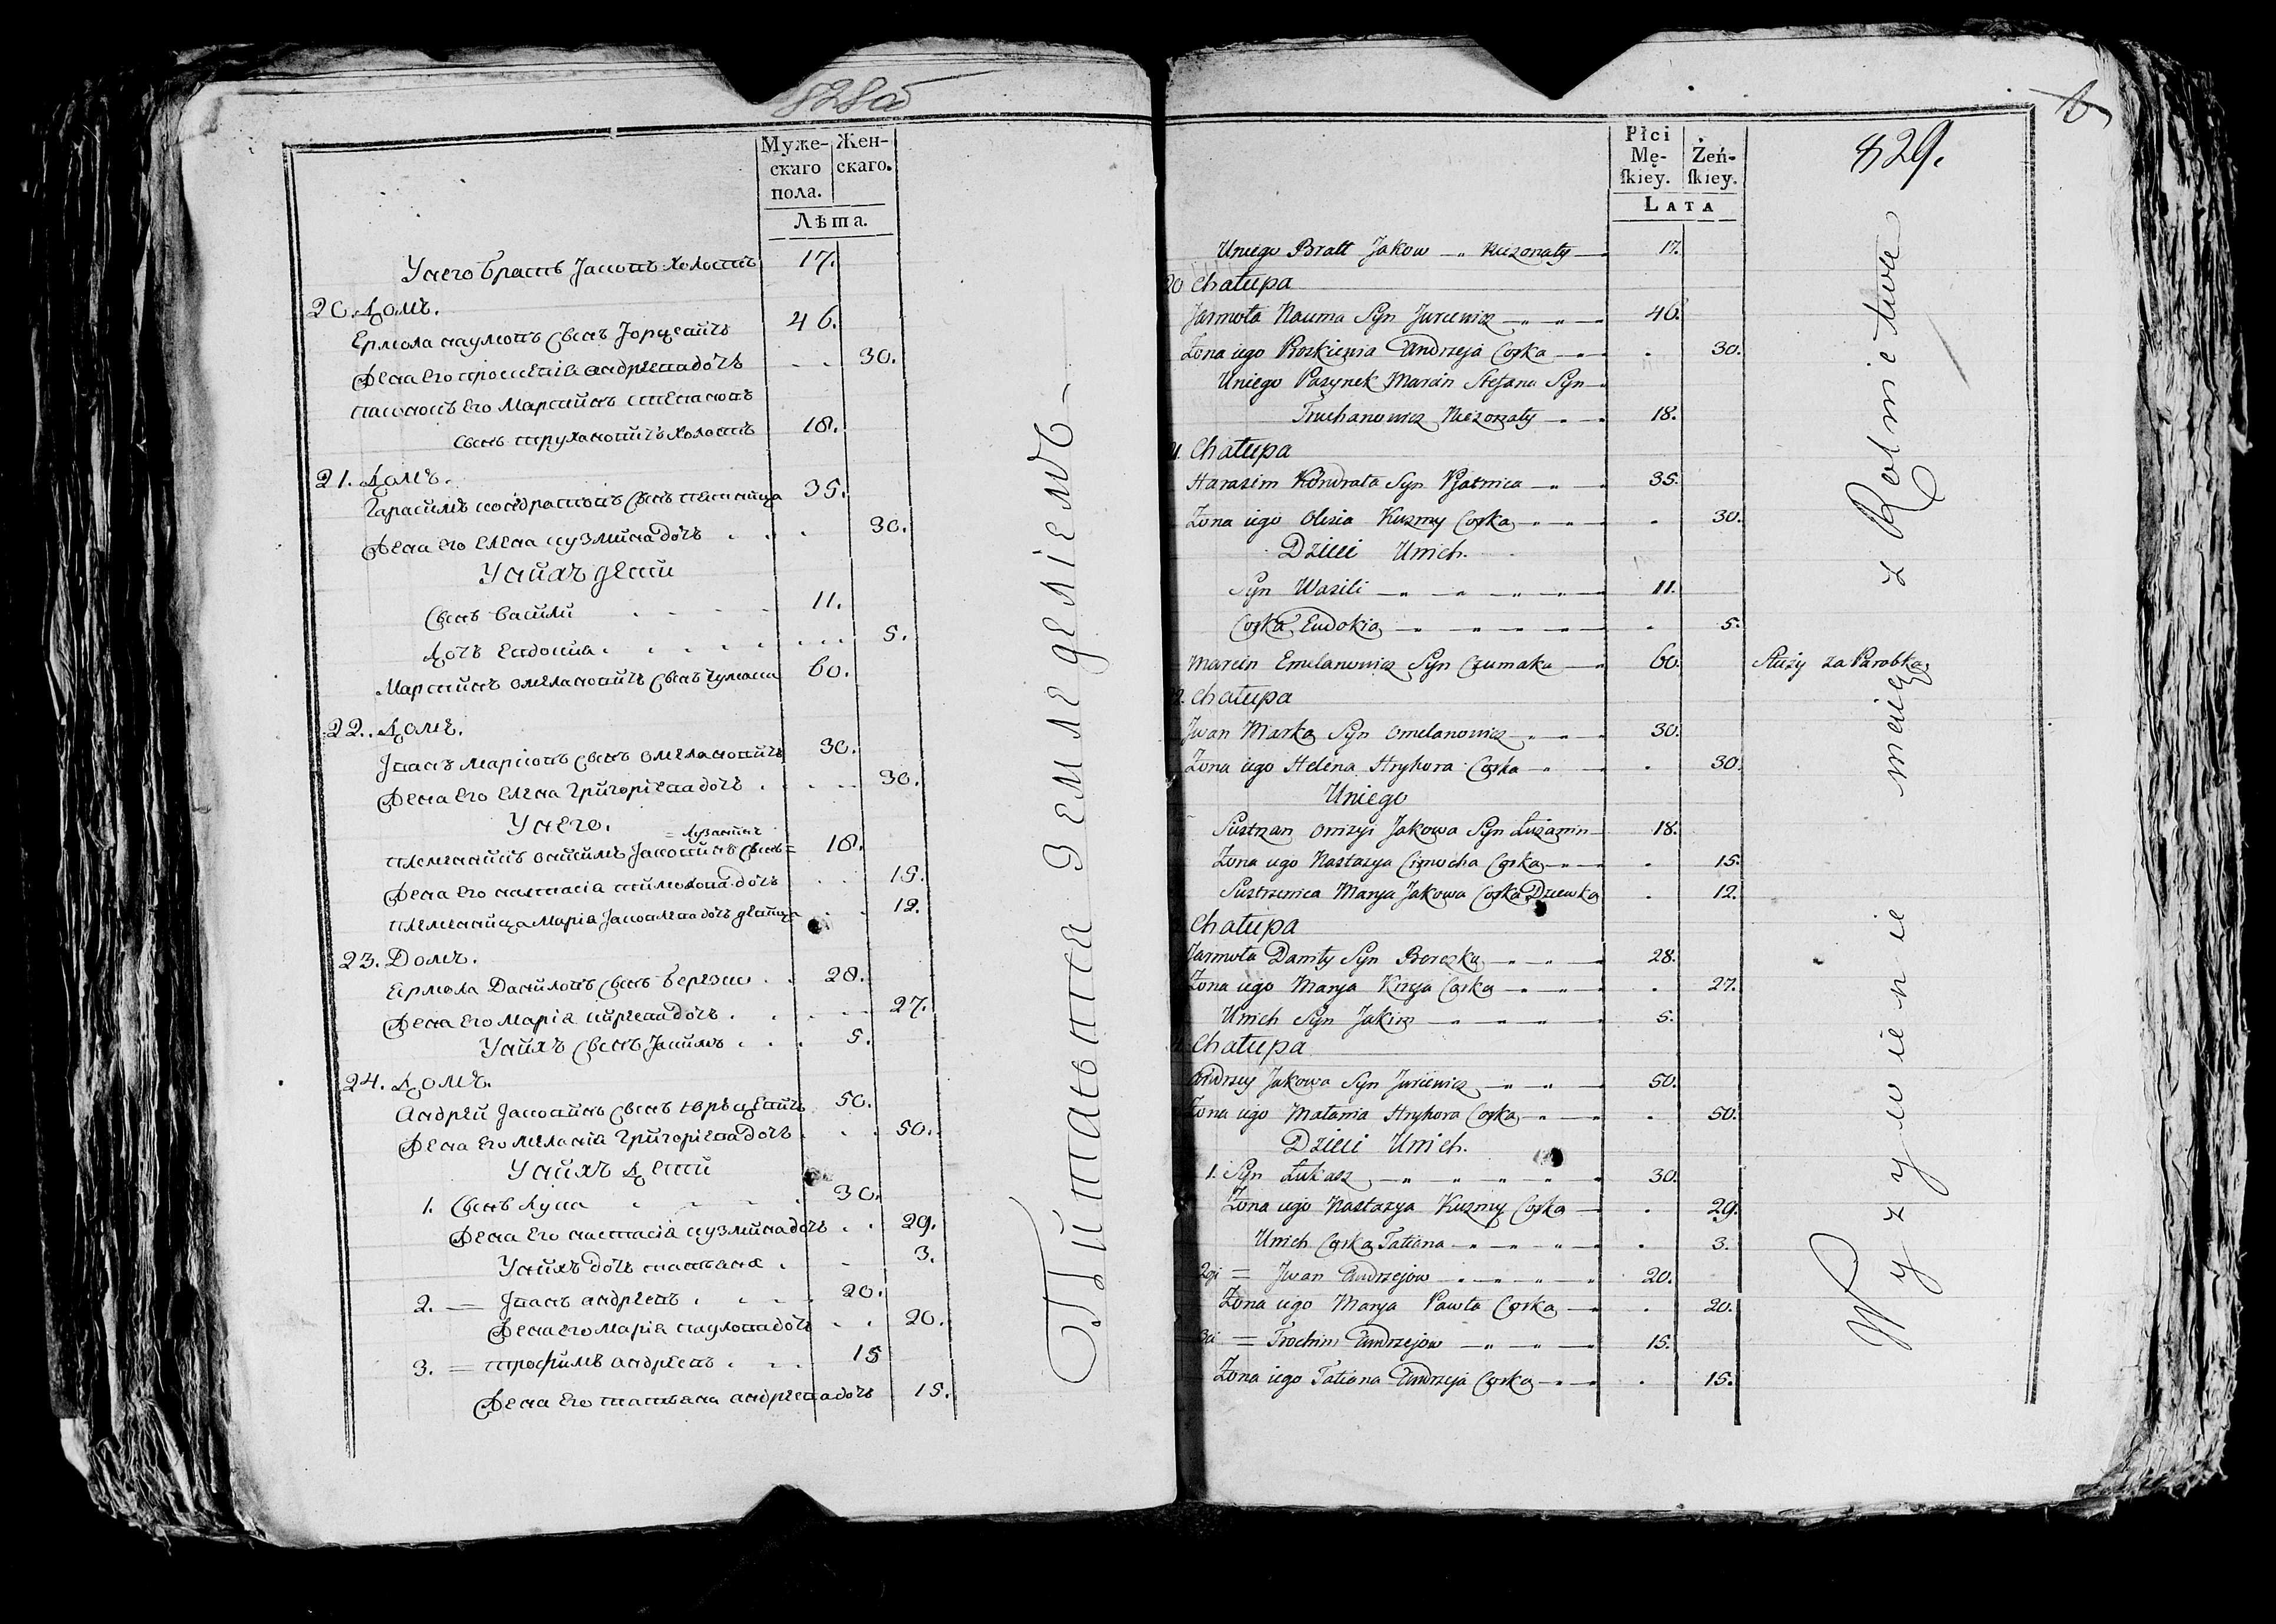 828об
Муже-
скаго
пола.
Жен-
скаго.
Лѣта.
Унего братъ Јаковъ холостъ 17.
20. Домъ.
Ермола наумовъ сынъ Јорцевичъ 46.
Жена его проскевія андреева дочь 30.
пасынокъ его Мартинъ степановъ
сынъ трухановичъ холостъ 18.
21. Домъ.
Гарасимъ кондратовъ сынъ петница 35.
Жена его елена кузмина дочь 30.
Унихъ дети
Сынъ васили 11.
Дочь евдокиа 5.
Мартинъ омеланович сынъ чумака 60.
22. Домъ.
Јванъ марковъ сынъ омеланович 30.
Жена его елена Григоріева дочь 30.
Унего.
= лузанинъ
племянникъ онисимъ Јаковинъ сынъ = 18.
Жена его настасіа тимохова дочь 15.
племянница Маріа Јаковлева дочь девица 12.
23. Домъ.
Ермола Данилов сынъ березко 28.
Жена его Маріа кирева дочь 27.
Унихъ сынъ Јакимъ 5.
24. Домъ.
Андрей Јаковинъ сынъ юрьцевичъ 50.
Жена его меланіа Григоріева дочь 50.
Унихъ дети
1. сынъ лука 30.
Жена его настасіа кузмина дочь 29.
Унихъ дочь татьяна 3.
2. = Јванъ андреевъ 20.
Жена его Маріа павлова дочь 20.
3. = трофимъ андреевъ 15
Жена его татьяна андреева дочь 15.
Питаютса Земледеліемъ
Płci
Mę-
ſkiey.
Żeń-
ſkiey.
LATA
829.
Uniego Bratt Jakow niezonaty 17.
20 Chałupa
Jarmoła Nauma Syn Jurcewicz 46.
Zona iego Proskiewia Andrzeja Corka 30.
Uniego Pasynek Marcin Stefana Syn
Truchanowicz Niezonaty 18.
21. Chałupa
Harasim Kondrata Syn Pjatnica 35.
Zona iego Olesia Kuzmy Corka 30.
Dzieci Unich.
Syn Wasili 11.
Corka Eudokia 5.
Marcin Emelanowicz Syn Czumaka 60. Służy za Parobka
2. Chałupa
Jwan Marka Syn Omelanowicz 30.
Zona iego Helena Hryhora Corka 30.
Uniego
Siestrzan Onizyi Jakowa Syn Łuzanin 18.
Zona iego Nastazya Cimocha Corka 15.
Siestrzenica Marya Jakowa Corka Dziewka 12.
Chałupa
Jarmoła Daniły Syn Berezka 28.
Zona iego Marya Kirya Corka 27.
Unich Syn Jakim 5.
Chałupa
Andrzey Jakowa Syn Jurcewicz 50.
Zona iego Małania Hryhora Corka 50.
Dzieci Unich.
1. Syn Łukasz 30.
Zona iego Nastazya Kuzmy Corka 29.
Unich Corka Tatiana 3.
2gi = Jwan Andrzejow 20.
Zona iego Marya Pawła Corka 20.
3ci = Trochim Andrzejow 15.
Zona iego Tatiana Andrzeja Corka 15.
Wyzywienie maią z Rolnictwa